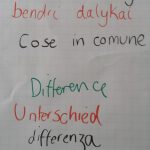 bendri dalykai
Cose in comune
Difference
Unterschied
differenza